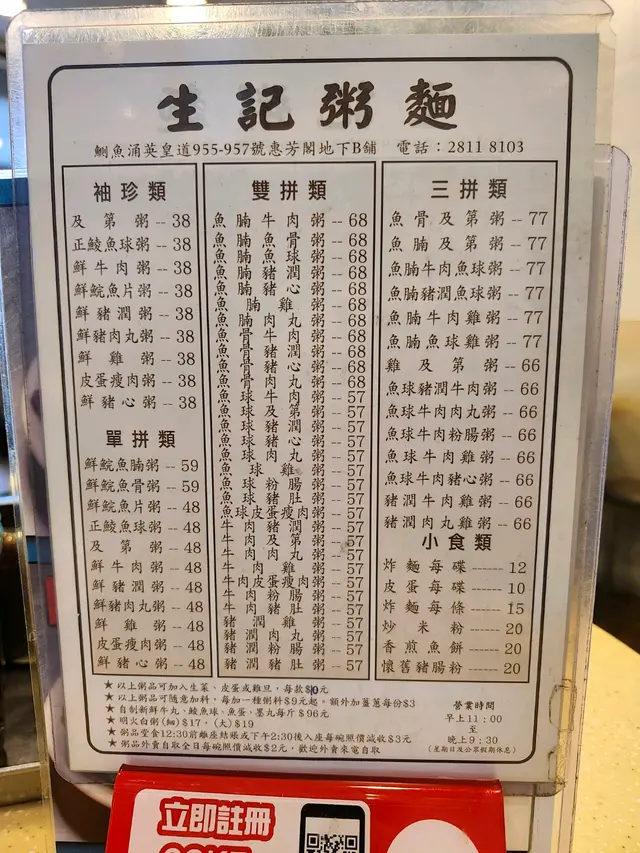 生記粥麵
鰂魚涌英皇道955-957號惠芳閣地下B舖 電話：2811 8103
袖珍類
及第粥--38
正鯪魚球粥--38
鮮牛肉粥--38
鮮鯇魚片粥--38
鮮豬潤粥--38
鮮豬肉丸粥--38
鮮雞粥--38
皮蛋瘦肉粥--38
鮮豬心粥--38
單拼類
鮮鯇魚腩粥--59
鮮鯇魚骨粥--59
鮮鯇魚片粥--48
正鯪魚球粥--48
及第粥--48
鮮牛肉粥--48
鮮豬潤粥--48
鮮豬肉丸粥--48
鮮雞粥--48
皮蛋瘦肉粥--48
鮮豬心粥--48
雙拼類
魚腩牛肉粥--68
魚腩魚骨粥--68
魚腩魚球粥--68
魚腩豬潤粥--68
魚腩豬心粥--68
魚腩雞粥--68
魚腩肉丸粥--68
魚骨牛肉粥--68
魚骨豬潤粥--68
魚骨豬心粥--68
魚骨肉丸粥--68
魚球牛肉粥--57
魚球及第粥--57
魚球豬潤粥--57
魚球豬心粥--57
魚球肉丸粥--57
魚球雞粥--57
魚球粉腸粥--57
魚球豬肚粥--57
魚球皮蛋瘦肉粥--57
牛肉豬潤粥--57
牛肉及第粥--57
牛肉肉丸粥--57
牛肉雞粥--57
牛肉皮蛋瘦肉粥--57
牛肉粉腸粥--57
牛肉豬肚粥--57
豬潤雞粥--57
豬潤肉丸粥--57
豬潤粉腸粥--57
豬潤豬肚粥--57
三拼類
魚骨及第粥--77
魚腩及第粥--77
魚腩牛肉魚球粥--77
魚腩豬潤魚球粥--77
魚腩牛肉雞粥--77
魚腩魚球雞粥--77
雞及第粥--66
魚球豬潤牛肉粥--66
魚球牛肉肉丸粥--66
魚球牛肉粉腸粥--66
魚球牛肉雞粥--66
魚球牛肉豬心粥--66
豬潤牛肉雞粥--66
豬潤肉丸雞粥--66
小食類
炸麵每碟------12
皮蛋每碟------10
炸麵每條------15
炒米粉------20
香煎魚餅------20
懷舊豬腸粉------20
★以上粥品可加入生菜、皮蛋或雞旦，每款$10元
★以上粥品可隨意加料，每加一種粥料$9元起。額外加薑蔥每份$3
★自制新鮮牛丸、鯪魚球、魚蛋、墨丸每斤$96元
★明火白粥(細)$17，(大)$19
★粥品堂食12:30前離座結賬或下午2:30後入座每碗照價減收$3元
★粥品外賣自取全日每碗照價減收$2元，歡迎外賣來電自取
營業時間
早上11：00
至
晚上9：30
(星期日及公眾假期休息)
立即註冊